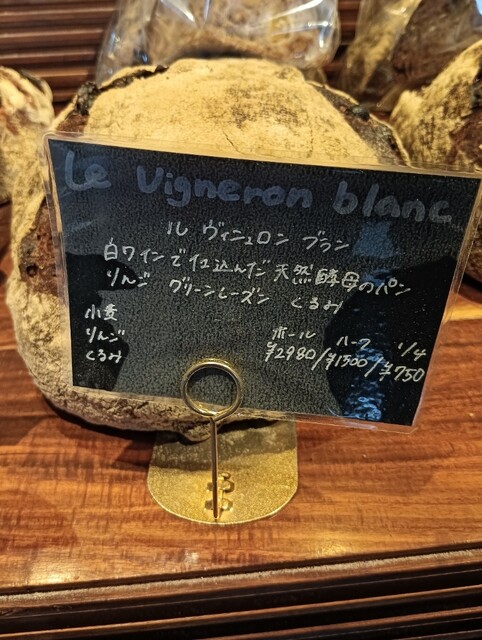 Le Vigneron blanc
ル ヴィニュロン ブラン
白ワインで仕込んだ天然酵母のパン
りんご グリーンレーズン くるみ
小麦
りんご
くるみ
ホール ハーフ 1/4
¥2980/¥1500/¥750